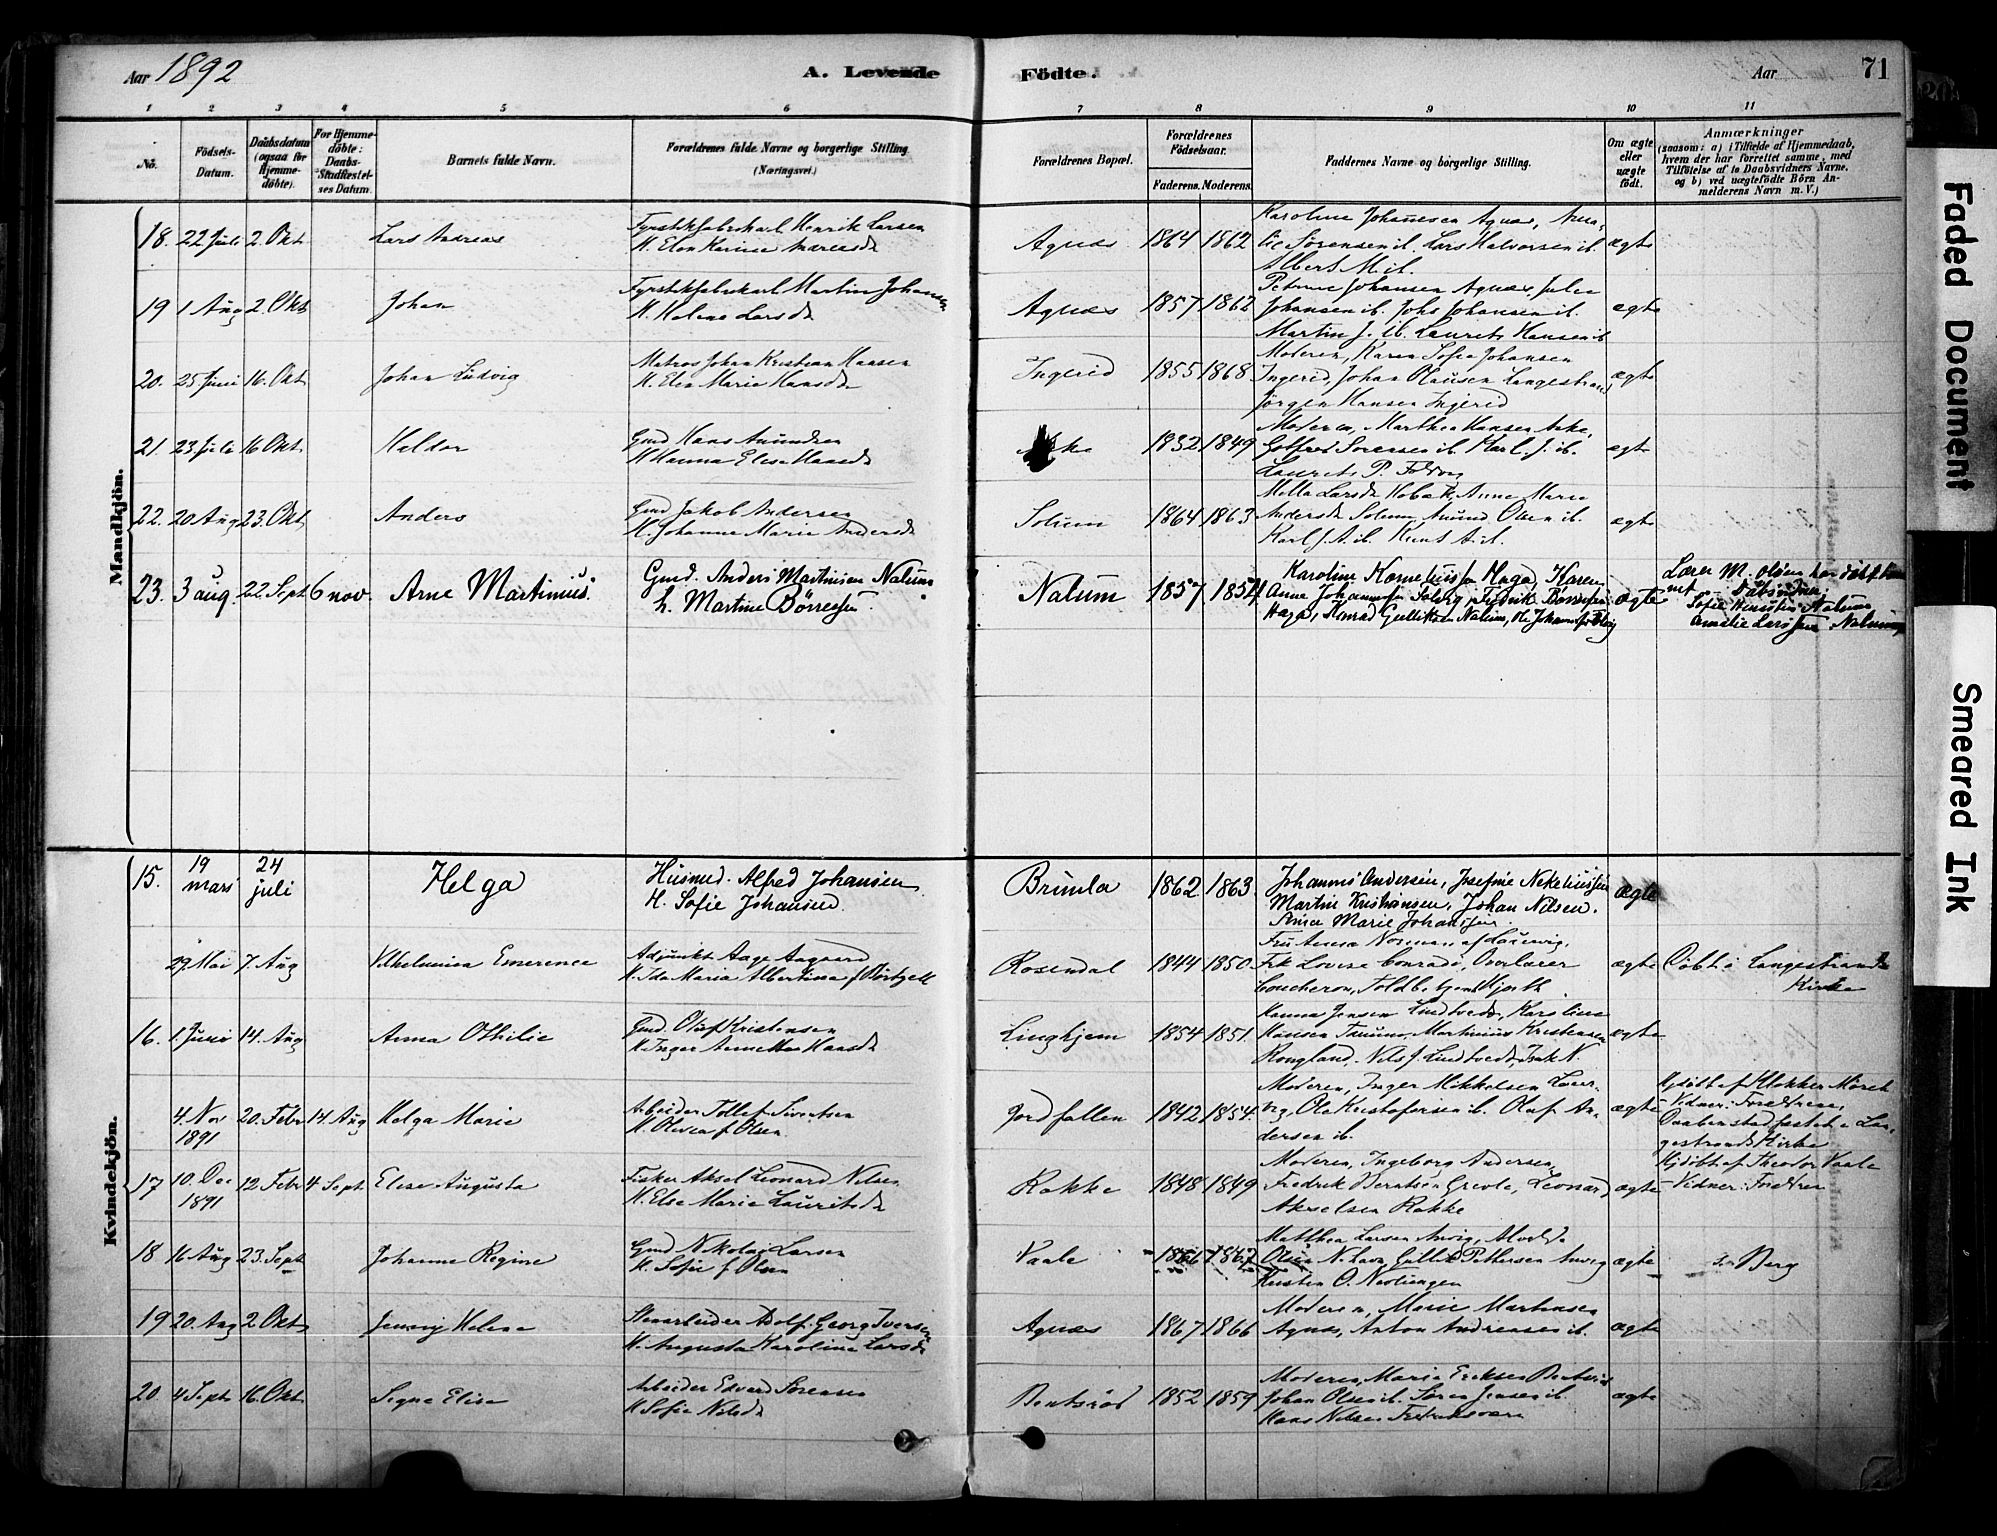 Aar 1892
A. Levende Födte.
Aar
71
1 2 3 4 5 6 7 8 9 10 11
No.
Födsels-Datum.
Daabsdatum (ogsaa for Hjemme-döbte).
For Hjemme-döbte: Daabs-Stadfæstel-ses Datum.
Barnets fulde Navn.
Forældrenes fulde Navne og borgerlige Stilling (Næringsvei.)
Forældrenes Bopæl.
Forældrenes Födselsaar.
Faderens. Moderens.
Faddernes Navne og borgerlige Stilling.
Om ægte eller uægte født.
Anmærkninger
(saasom: a) i Tilfælde af Hjemmedaab, hvem der har forrettet samme, med Tilföielse af to Daabsvidners Navne, og b) ved uægtefödte Börn An-melderens Navn m. V.)
Mandkjön.
18. 22 Juli 2. Okt Lars Andreas Henrik Larsen Agnæs 1864 1862 Karoline Johansen Agnæs, Sörensen ib. Lars Halvorsen ib. Albert M. ib. ægte
19 1 Aug 2. Okt Johan Martin Johansen H. Helene Larsd Agnæs 1857 1862 Petrine Johansen Agnæs, Johansen ib. Johs Johansen ib. Martin J. ib. Laurits Hansen ib ægte
20. 25 Juni 16. Okt Johan Ludvig Matros Johan Kristian Hansen H. Elen Maria Hansd Ingerid 1855 1868 Moderen, Karen Sofie Johansen Ingerid, Johan Olausen Langestrand Jörgen Hansen Ingerid ægte
21. 23 Juli 16 Okt Haldor Gmd Hans Amundsen H. Hanna Elise Hansd 1832 1849 Moderen, Marthea Hansen Aske, Gotfred Sorensen ib. Karl J. ib. Laurits P. ægte
22. 20 Aug 23. Okt Anders Gmd Jakob Andersen H. Johanne Marie Andersd Solum 1864 1863 Larsd Hobæk, Anne Marie Andersd Solum, Amund Olsen ib. Karl J. A. ib. Knut A. ib. ægte
23. 3 aug. 22. Sept 6 nov. Arne Martinius. Gmd. Anders Martinsen Nalum h. Martine Börresen. Nalum 1857 1854 Karoline Korneliussen Haga, Karen Anne Johannessen Solvig, Fredrik Börresen Haga, Konrad Gulliksen Nalum, Ole Johannessen ægte Lærer M. Olsen har döbt Sofie Nalum Amalie Larssen Nalum
Kvindekjön.
15. 19 mars 24 juli Helga Husmd. Alfred Johansen H. Sofie Johansen Brunla 1862 1863. Johannes Andersen, Josefine Martin Kristiansen, Johan Nilsen. Anna Marie Johanssen ægte
29 Mai 7. Aug Vilhelmina Emerence Adjunkt Aage Aagaard H. Ida Maria Albertina f. Rosendal 1844 1850. Fru Norman af Laurvig, Frk Lovise Conradi, Overlærer Coucheron, Toldbetjent Hjorth ægte Döbt i Langestrands Kirke
16. 1. Juni 14. Aug Anna Othilie Gmd. Oluf Kristensen H. Inger Annette Hansd Linghjem 1854 1851. Hanna Jensen Lindvedt, Karoline Hansen Martinius Kristensen Rongland. Nils J. Lindvedt, Isak N. ægte
4. Nov 1891 20. Febr 14 Aug Helga Marie Arbeider Tollef Sivertsen H. Olivia f. Olsen. Jordfallen 1842 1854. Moderen, Inger Mikkelsen Laurvig, Ole Kristofersen ib. Oluf Andersen ib. ægte Hjdöbt af Klokker Vidner: Forældrene, Daaben stadfæstet i Langestrands Kirke
17 10. Dec 1891 12 Febr 4 Sept Elise Augusta Fisker Aksel Leonard Nilsen H. Else Marie Lauritsd Rakke 1848 1849 Moderen, Ingeborg Andersen, Fredrik Berntsen Greole, Leonard Akselsen Rakke ægte Hjdöbt af Theodor Vaale Vidner: Forældre
18 16 Aug 23. Sept Johanne Regine Gmd Nikolai Larsen H. Sofie f. Olsen Vaale 1866 1867 Matthea Larsen Anvig, Olsen N. Gullik Pettersen Anvig Kristen O. ægte i Berg
19 20. Aug 2. Okt Jenny Helene Stenarbeider Adolf Georg Iversen H. Augusta Karoline Larsd Agnæs 1867 1866 Moderen, Marie Martinsen Agnæs, Anton Andreasen ib. ægte
20. 4 Sept. 16. Okt Signe Elise Arbeider Edvard Sörensen H. Sofie Nilsd Bentsröd 1852 1859 Moderen, Maria Eriksen Bentsröd Johan Olsen ib. Sören Jensen ib. Hans Nilsen Fredriksværn ægte
Faded Document
Smeared Ink